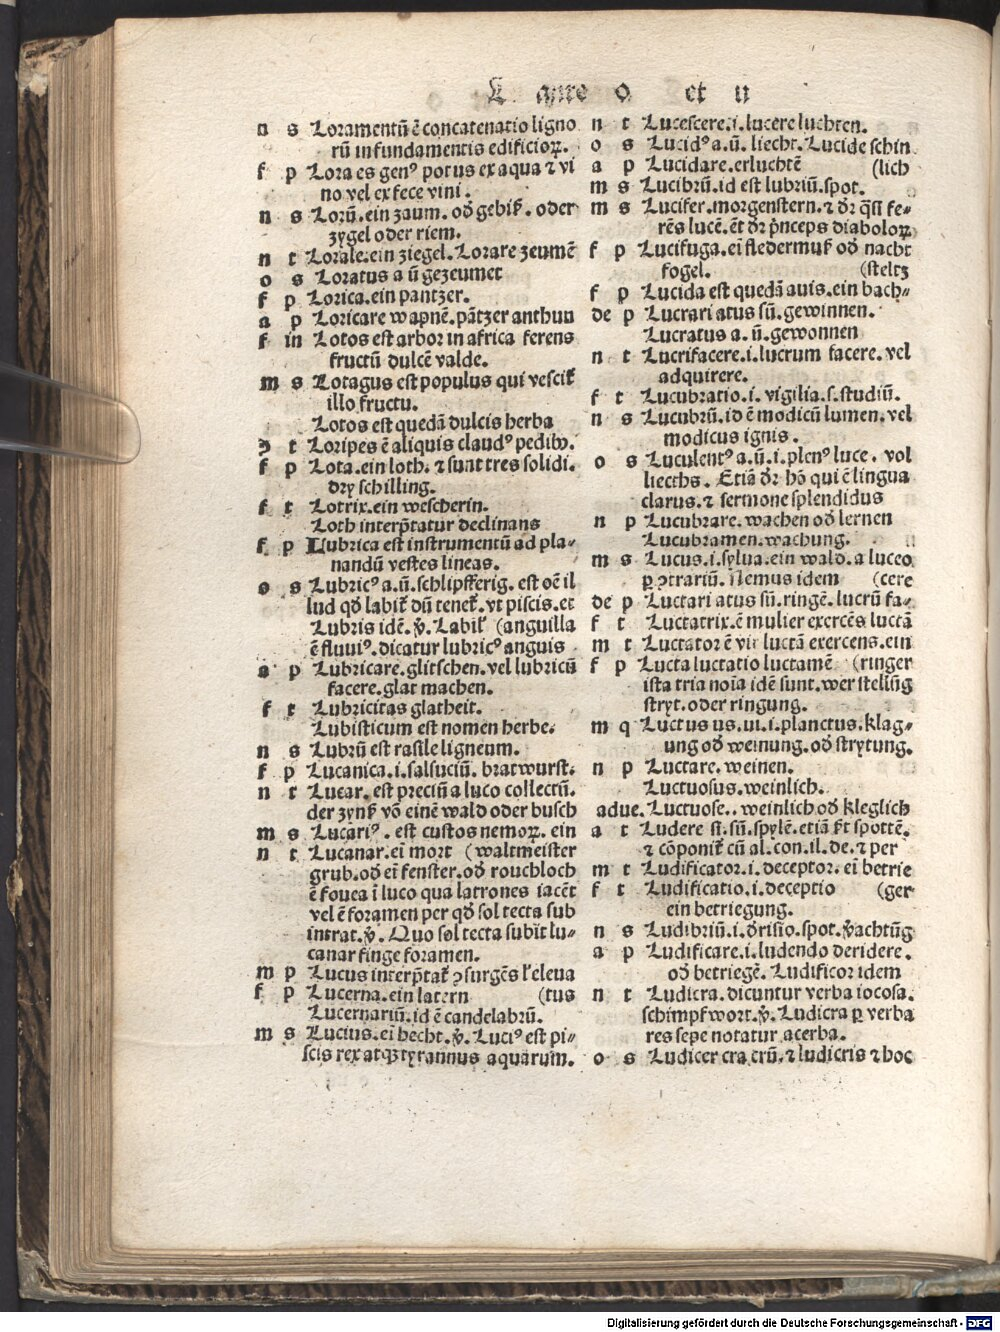 L ante o et u
n s Loramentū ē concatenatio ligno
rū in fundamentis edificioꝝ.
f p Lora es genꝰ potus ex aqua ⁊ vi
no vel ex fece vini.
n s Lorū. ein zaum. oď gebiß. oder
zygel oder riem.
n t Lorale. ein ziegel. Lorare zeumē
o s Loratus a ū gezeumet
f p Lorica. ein pantzer.
a p Loricare wapnē. pātzer anthun
f in Lotos est arbor in africa ferens
fructū dulcē valde.
m s Lotagus est populus qui vescit̃
illo fructu.
Lotos est quedā dulcis herba
g t Loripes ē aliquis claudꝰ pedibꝫ.
f p Lota. ein loth. ⁊ sunt tres solidi.
dry schilling.
f t Lotrix. ein wescherin.
Loth interp̄tatur declinans
f p Lubrica est instrumentū ad pla-
nandū vestes lineas.
o s Lubricꝰ a. ū. schlipfferig. est oē il
lud qď labit̃ dū tenet̃. vt piscis. et
Lubris idē. v̄. Labit̃ (anguilla
ē fluuiꝰ. dicatur lubricꝰ anguis
a p Lubricare. glitschen. vel lubricū
facere. glat machen.
f t Lubricitas glatheit.
Lubisticum est nomen herbe.
n s Lubrū est rastle ligneum.
f p Lucanica. i. salsuciū. bratwurst.
n t Lucar. est preciū a luco collectū.
der zynß vō einē wald oder busch
m s Lucariꝰ. est custos nemoꝝ. ein
n t Lucanar. ei mort (waltmeister
grub. oď eī fenster. oď rouchloch
ē fouea ī luco qua latrones iacēt
vel ē foramen per qď sol tecta sub
intrat. v̄. Quo sol tecta subit lu-
canar finge foramen.
m p Lucus interp̄tat̃ ꝯsurgēs l' eleua
f p Lucerna. ein latern (tus
Lucernariū. id ē candelabrū.
m s Lucius. eī hecht. v̄. Luciꝰ est pi-
scis rex atqꝫ tyrannus aquarum.
n t Lucescere. i. lucere luchten.
o s Lucidꝰ a. ū. liecht. Lucide schin
a p Lucidare. erluchtē (lich
m s Lucibrū. id est lubriū. spot.
m s Lucifer. morgenstern. ⁊ dr̄ q̄si fe-
rēs lucē. ēt dr̄ p̄nceps diaboloꝝ
f p Lucifuga. eī fledermuß oď nacht
fogel. (steltz
f p Lucida est quedā auis. ein bach-
de p Lucrari atus sū. gewinnen.
Lucratus a. ū. gewonnen
n t Lucrifacere. i. lucrum facere. vel
adquirere.
f t Lucubratio. i. vigilia. s. studiū.
n s Lucubrū. id ē modicū lumen. vel
modicus ignis.
o s Luculentꝰ a. ū. i. plenꝰ luce. vol
liecths. Etiā dr̄ hō qui ē lingua
clarus. ⁊ sermone splendidus
n p Lucubrare. wachen oď lernen
Lucubramen. wachung.
m s Lucus. i. sylua. ein wald. a luceo
ꝑ ꝯtrariū. Nemus idem (cere
de p Luctari atus sū. ringē. lucrū fa-
f t Luctatrix. ē mulier exercēs luctā
m t Luctator ē vir luctā exercens. ein
f p Lucta luctatio luctamē (ringer
ista tria noīa idē sunt. wer stellūg
stryt. oder ringung.
m q Luctus us. ui. i. planctus. klag-
ung oď weinung. oď strytung.
n p Luctare. weinen.
Luctuosus. weinlich.
adue. Luctuose.. weinlich oď kleglich
a t Ludere si. sū. spylē. etiā ſt̃ spottē.
⁊ cōponit̃ cū al. con. il. de. ⁊ per
m t Ludificator. i. deceptor. eī betrie
f t Ludificatio. i. deceptio (ger
ein betriegung.
n s Ludibriū. i. ďrisio. spot. v̄achtūg
a p Ludificare. i. ludendo deridere.
oď betriegē. Ludificor idem
n t Ludicra. dicuntur verba iocosa.
schimpfwort. v̄. Ludicra ꝑ verba
res sepe notatur acerba.
o s Ludicer cra crū. ⁊ ludicris ⁊ hoc
Digitalisierung gefördert durch die Deutsche Forschungsgemeinschaft - DFG